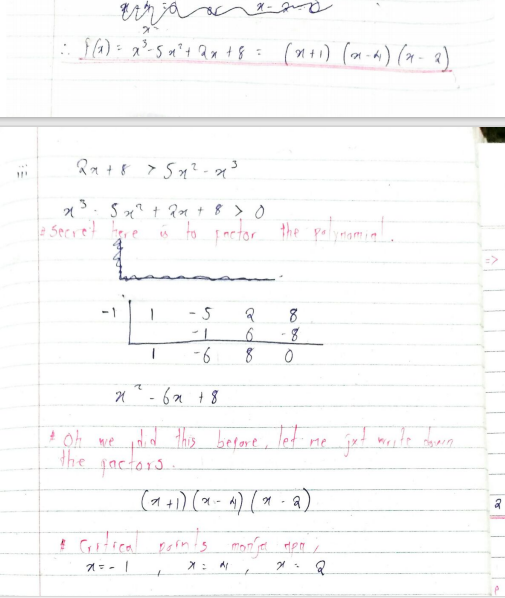 x - 2 = 0
∴ f(x) = x³ - 5x² + 2x + 8 = (x+1) (x-4) (x-2)
iii 2x + 8 > 5x² - x³
x³ - 5x² + 2x + 8 > 0
Secret here is to factor the polynomial.
-1 | 1 -5 2 8
-1 6 -8
1 -6 8 0
x² - 6x + 8
* Oh we did this before, let me jxt write down
the factors.
(x+1) (x-4) (x-2)
* Critical points monja apa,
x = -1 , x = 4 , x = 2
=>
2